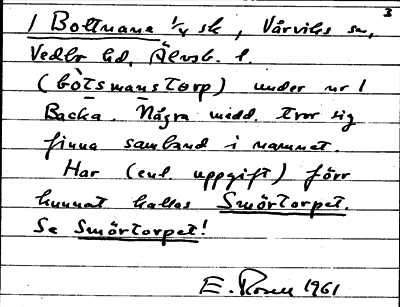 3
1 Boltnane 1/4 sk, Vårviks sn,
Vedbo hd, Älvsb. l.
(bòtsmanstorp) under nr 1
Backa. Några medd. tror sig
finna samband i namnet.
Har (enl. uppgift) förr
kunnat kallas Smörtorpet.
Se Smörtorpet!
E. Rosell 1961